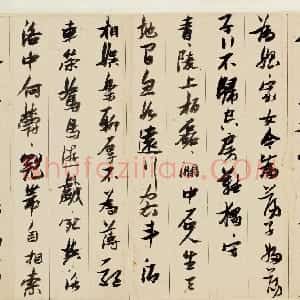 為倡家女今為蕩子婦蕩
子行不歸空房難獨守
青〻陵上柏磊〻澗中石人生天
地間忽如遠行客斗酒
相娛樂聊厚不為薄驅
車策駑馬遊戲宛與洛
洛中何鬱〻冠帶自相索